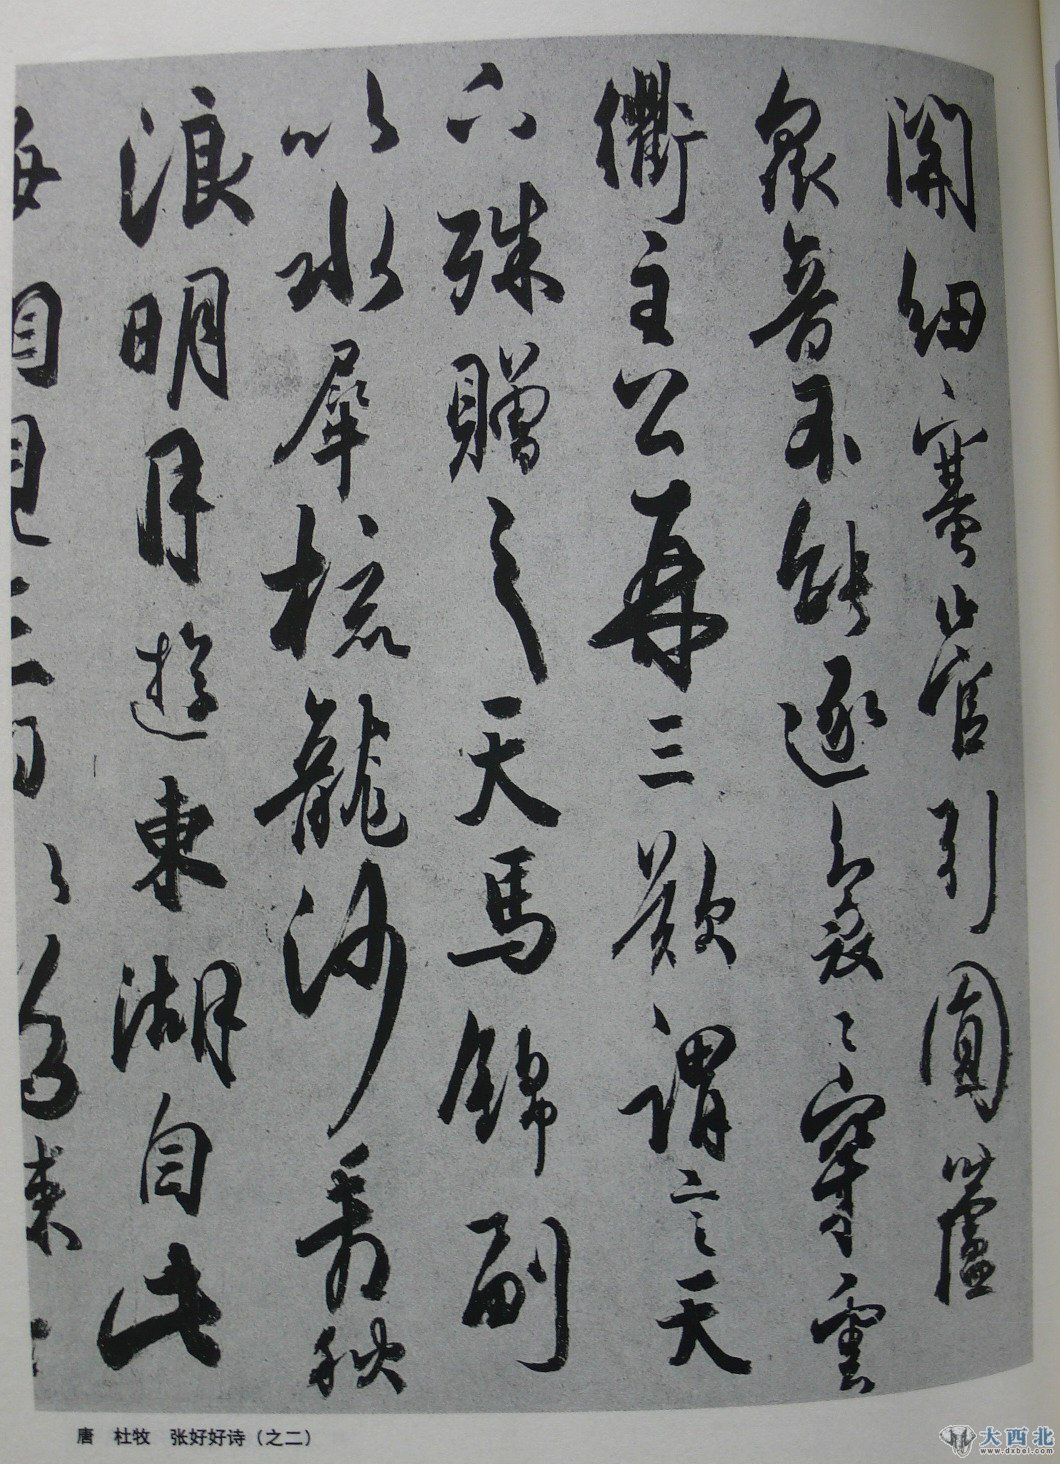 關紐塞管引圓蘆
眾音不能逐裊〻穿雲
衢主公再三歎謂言天
下殊贈之天馬錦副
以水犀梳龍沙看秋
浪明月遊東湖自此
每相見三日以為踈
唐 杜牧 张好好诗(之二)
大西北
www.dxbei.com